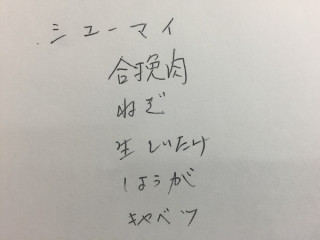 シューマイ
合挽肉
ねぎ
生しいたけ
しょうが
キャベツ